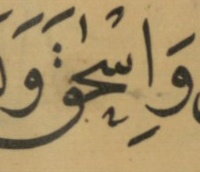 وَاِسْحٰقَ وَ